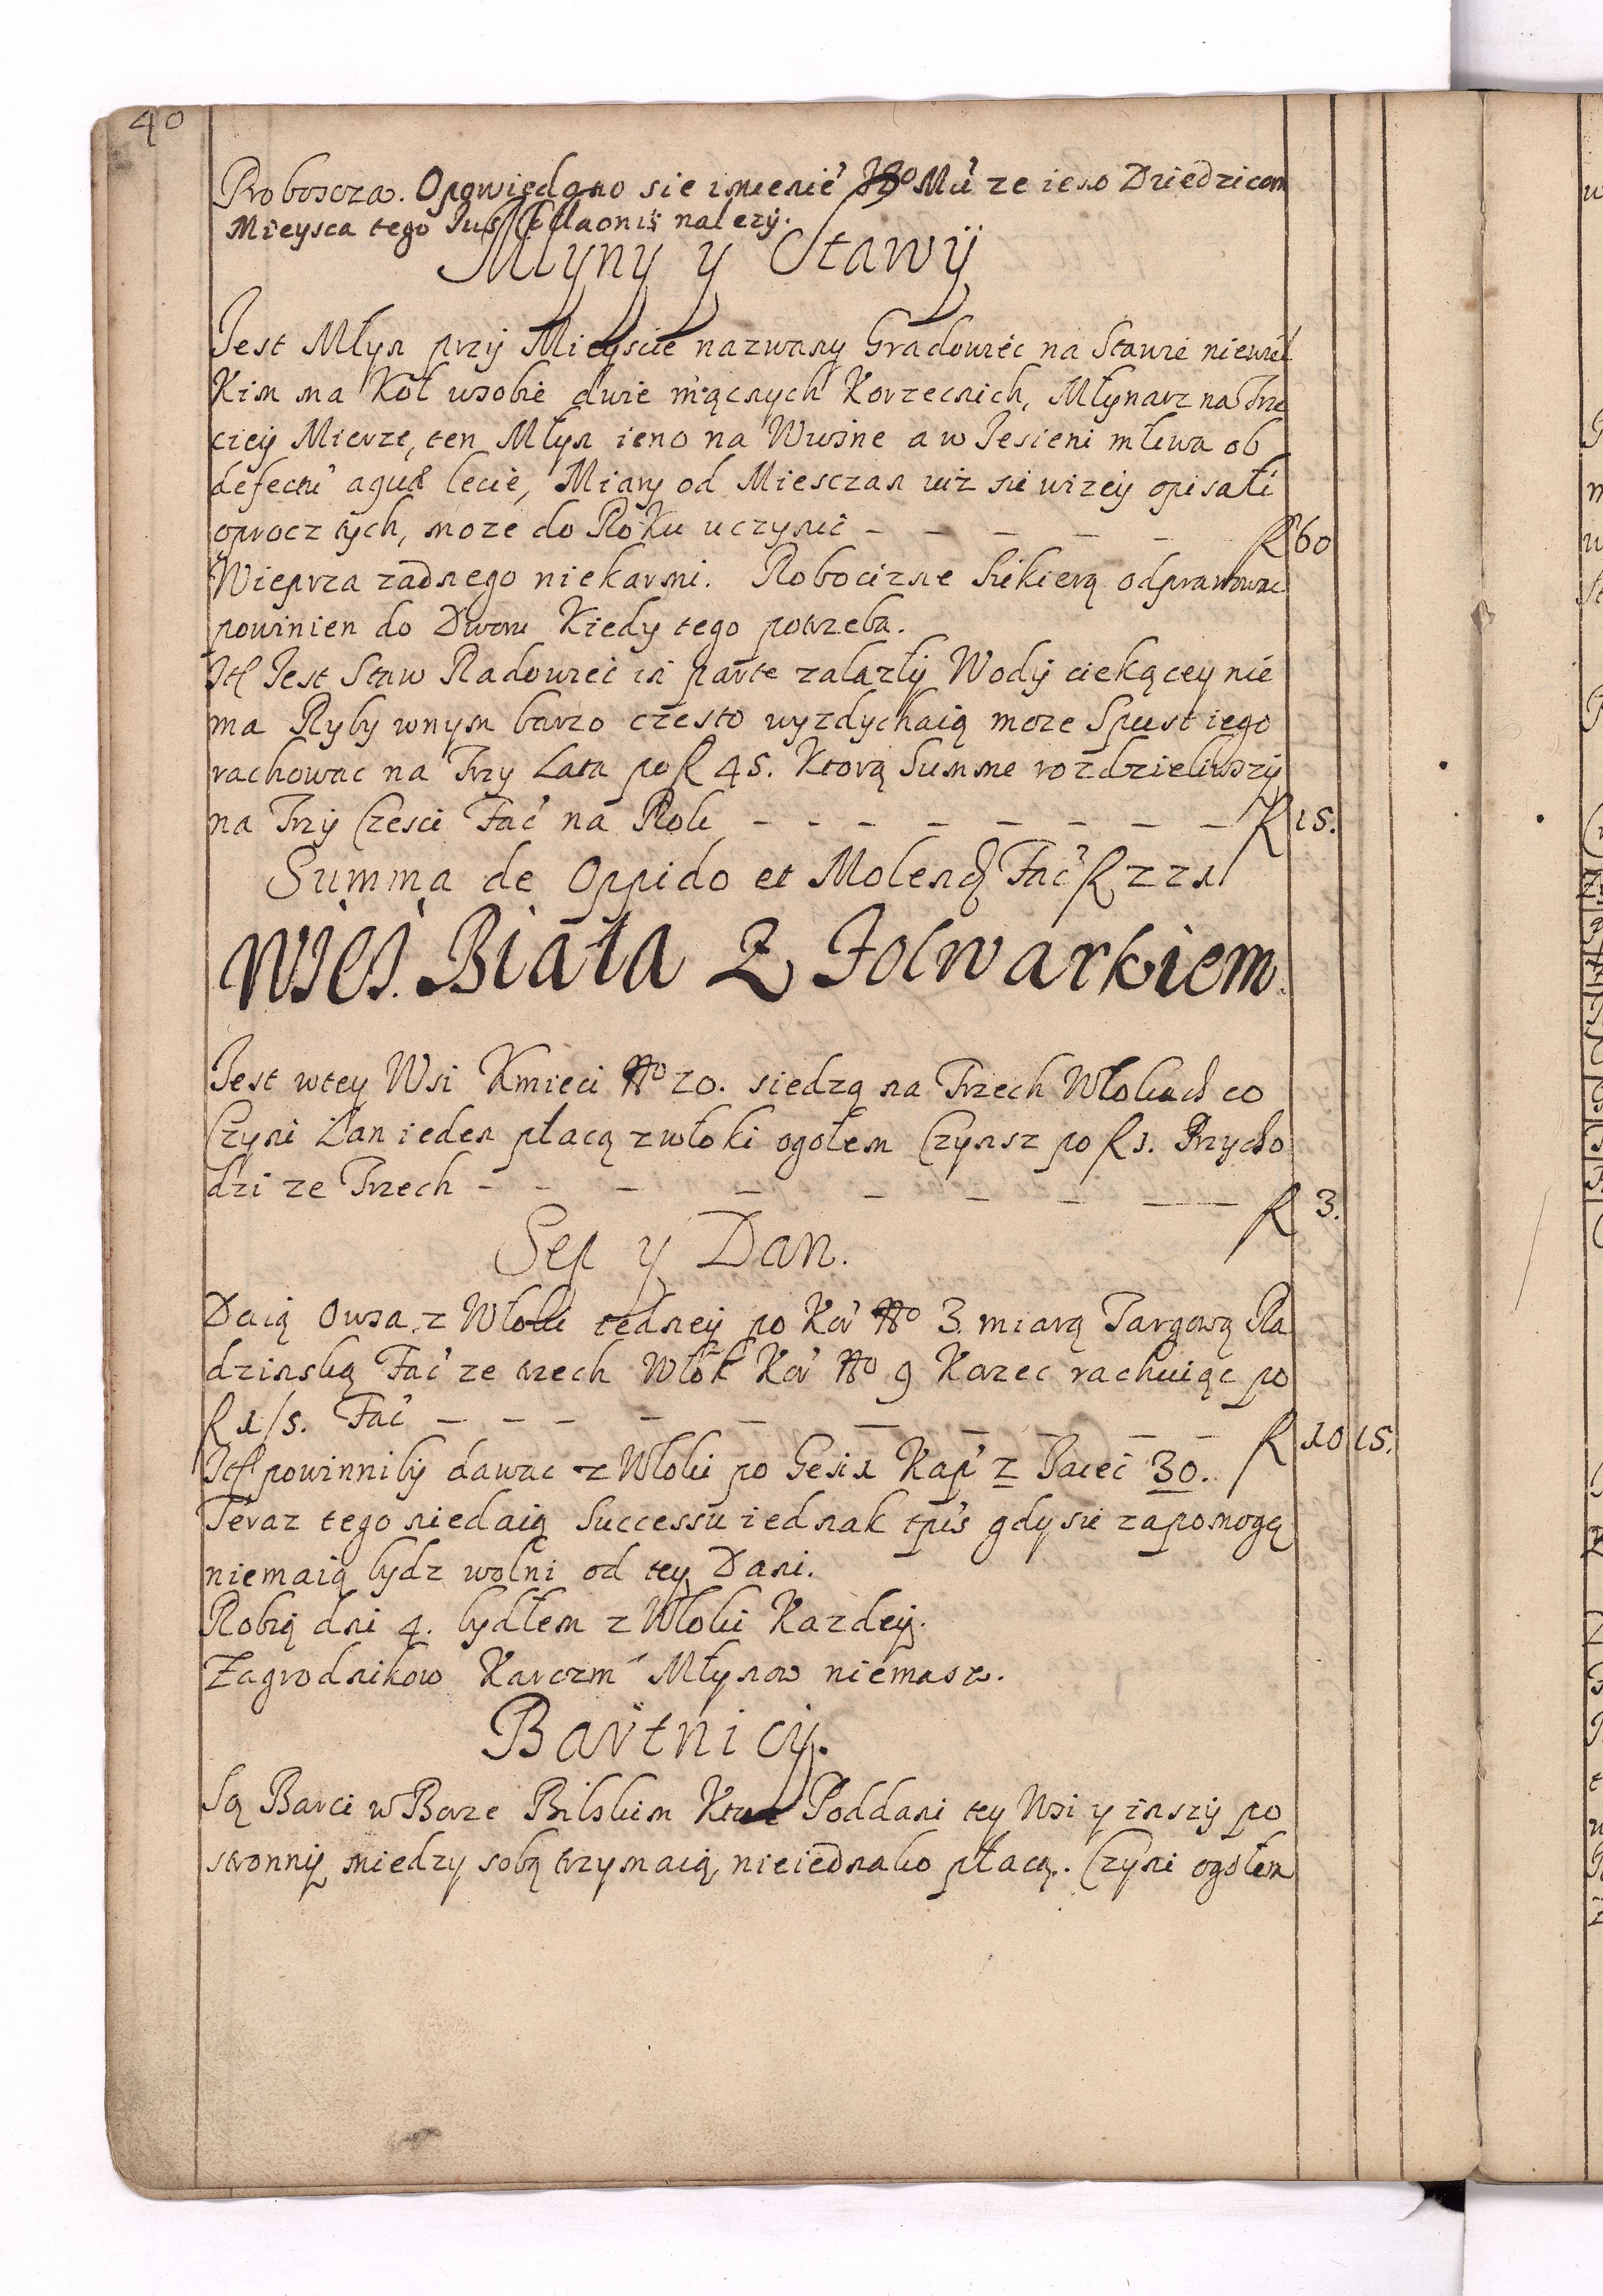 40
Proboscza. Opowiedano sie imienie' Mu' ze ieno Dziedzicom
Mieysca tego Jus Collaonis nalezy.
Młyny y Stawÿ
Jest Młyn przÿ Mieyscie nazwany Gradowiec na Stawie niewiel
Kim ma Koł wsobie dwie mącnych Korzecnich, Młynarz na Trze
cieÿ Mierze, ten Młyn ieno na Wiosne a w Jesieni mliwa ob
defectu' aquæ lecie, Miary od Miesczan iuż sie wizeÿ opisali
oprocz tÿch, moze do Roku uczynic – – – – – – R 60
Wieprza zadnego niekarmi. Robocizne Siekierą odprawowac
powinien do Dworu Kiedy tego potrzeba.
Itē Jest Staw Radowiec in parte zalazlÿ Wodÿ ciekącey nie
ma Ryby wnym barzo czesto wyzdychaią moze Spust iego
rachowac na Trzy Lata po R 45. Ktorą Summe rozdzieliwszÿ
na Trzÿ Czesci Fac' na Rok – – – – – – – R 15.
Summa de Oppido et Molend Fac' R 221
WIES. Biała Z Folwarkiem.
Jest wtey Wsi Kmieci No 20. siedzą na Trzech Włokach co
Czyni Łan ieden płacą zwłoki ogołem Czynsz po R 1. Przycho
dzi ze Trzech – – – – – – – – R 3.
Sep y Dan.
Daią Owsa z Włoki iedneÿ po Kor' No 3. miarą Targową Ra
dzinską Fac' ze trzech Włok Kor' No 9 Korzec rachuiąc po
R 1/5. Fac' – – – – – – – – – R 10 15.
Itē powinnibÿ dawac z Włoki po Gesi 1 Kap' 2 Jaiec 30.
Teraz tego niedaią Successu iednak tpis gdy sie zapomogą
niemaią bydz wolni od tey Dani.
Robią dni 4. bydłem z Włoki Kazdeÿ.
Zagrodnikow Karczm' Młynow niemasz.
Bartnicÿ.
Są Barci w Borze Bilskim Ktore Poddani tey Wsi y inszÿ po
stronnÿ miedzy sobą trzymaią, nieiednako płacą. Czyni ogołem